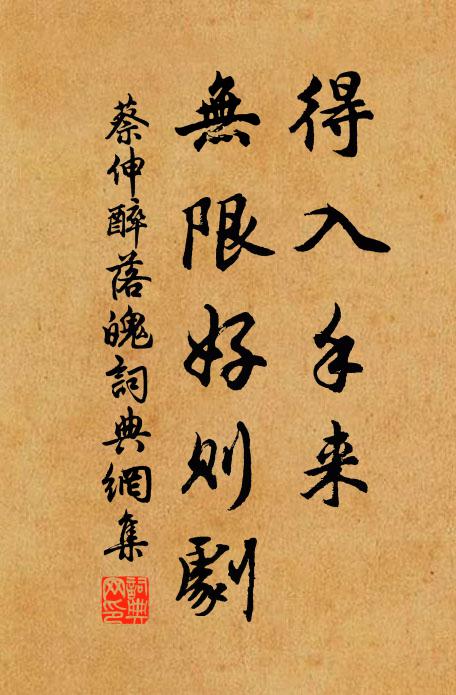 得入手来
無限好則劇
蔡伸醉落魄詞典網集
詞典網印